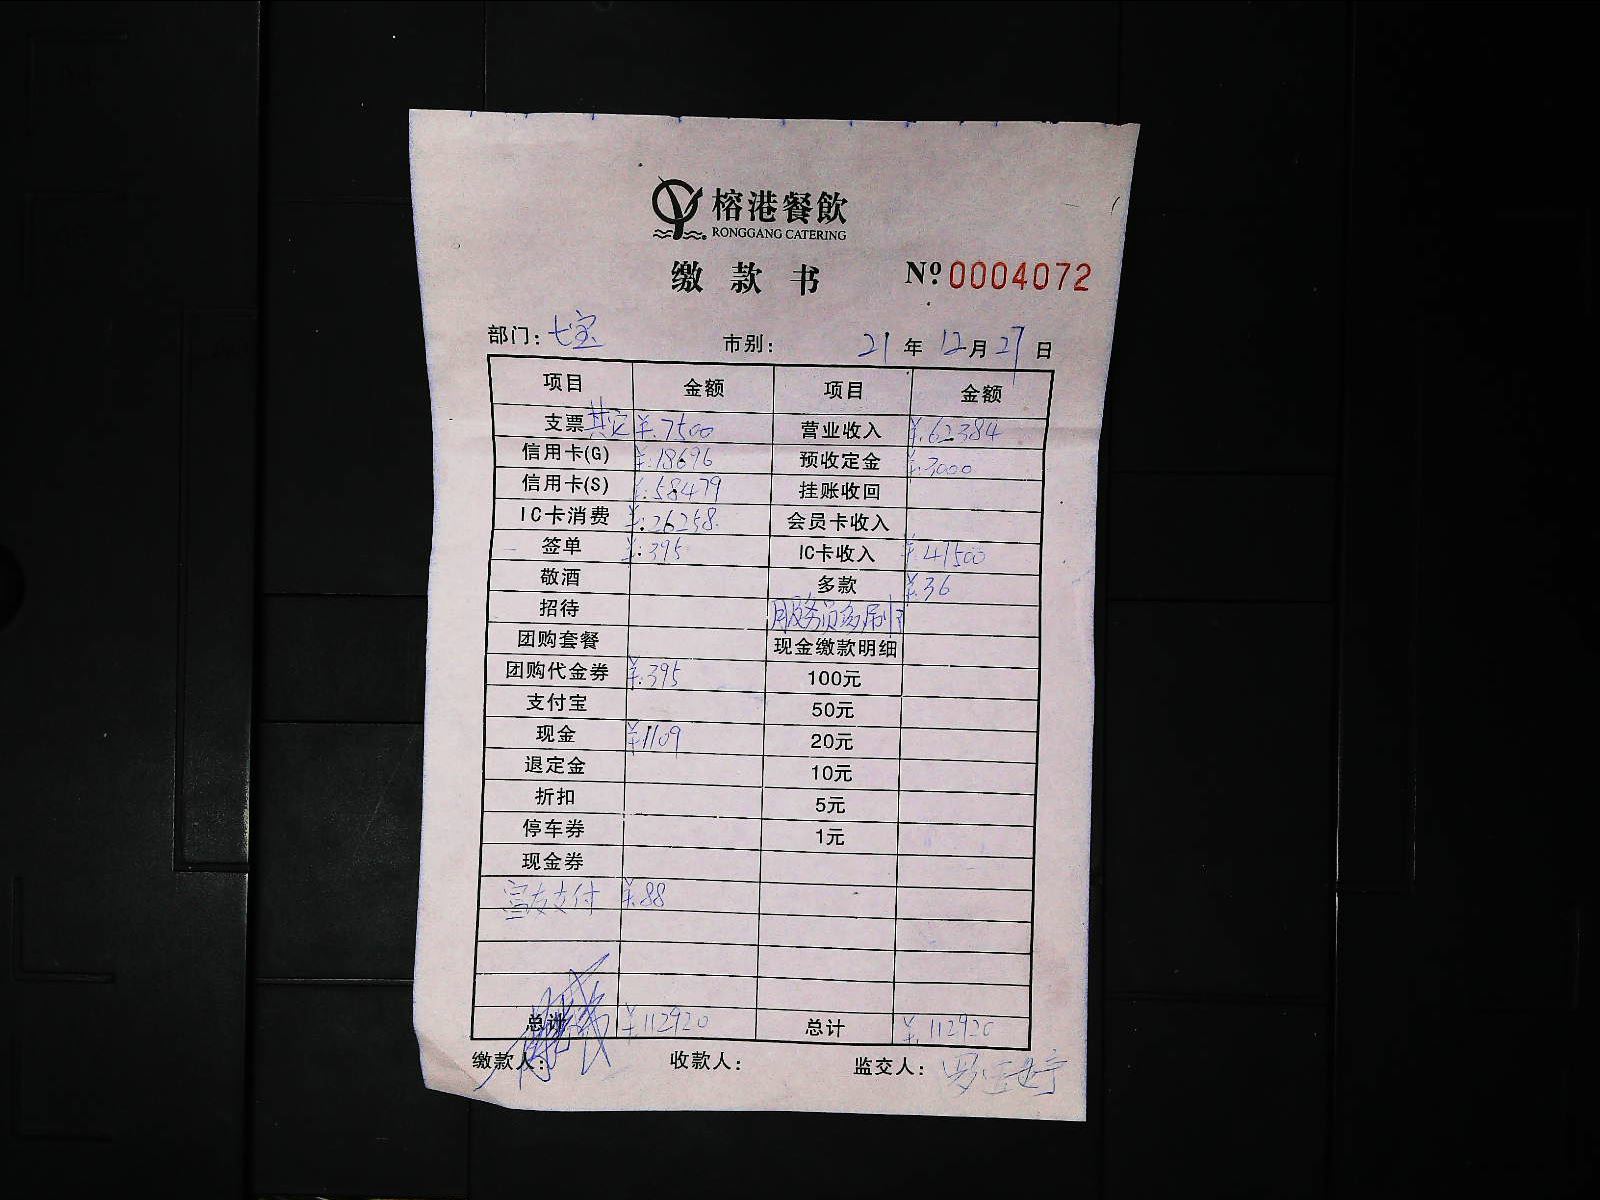 榕港餐飲
RONGGANG CATERING
缴款书 Nº 0004072
部门: 七宝 市别: 21 年 12 月 27 日
项目 金额 项目 金额
支票 其它 ¥:7500 营业收入 ¥:62384
信用卡(G) ¥:18696 预收定金 ¥:3000
信用卡(S) ¥:58479 挂账收回
IC卡消费 ¥:26258 会员卡收入
签单 ¥:395 IC卡收入 ¥:47500
敬酒 多款 ¥:36
招待 服务员多刷卡
团购套餐 现金缴款明细
团购代金券 ¥:395 100元
支付宝 50元
现金 ¥:1109 20元
退定金 10元
折扣 5元
停车券 1元
现金券
支付 ¥:88
总计 ¥:112920 总计 ¥:112920
缴款人: 收款人: 监交人: